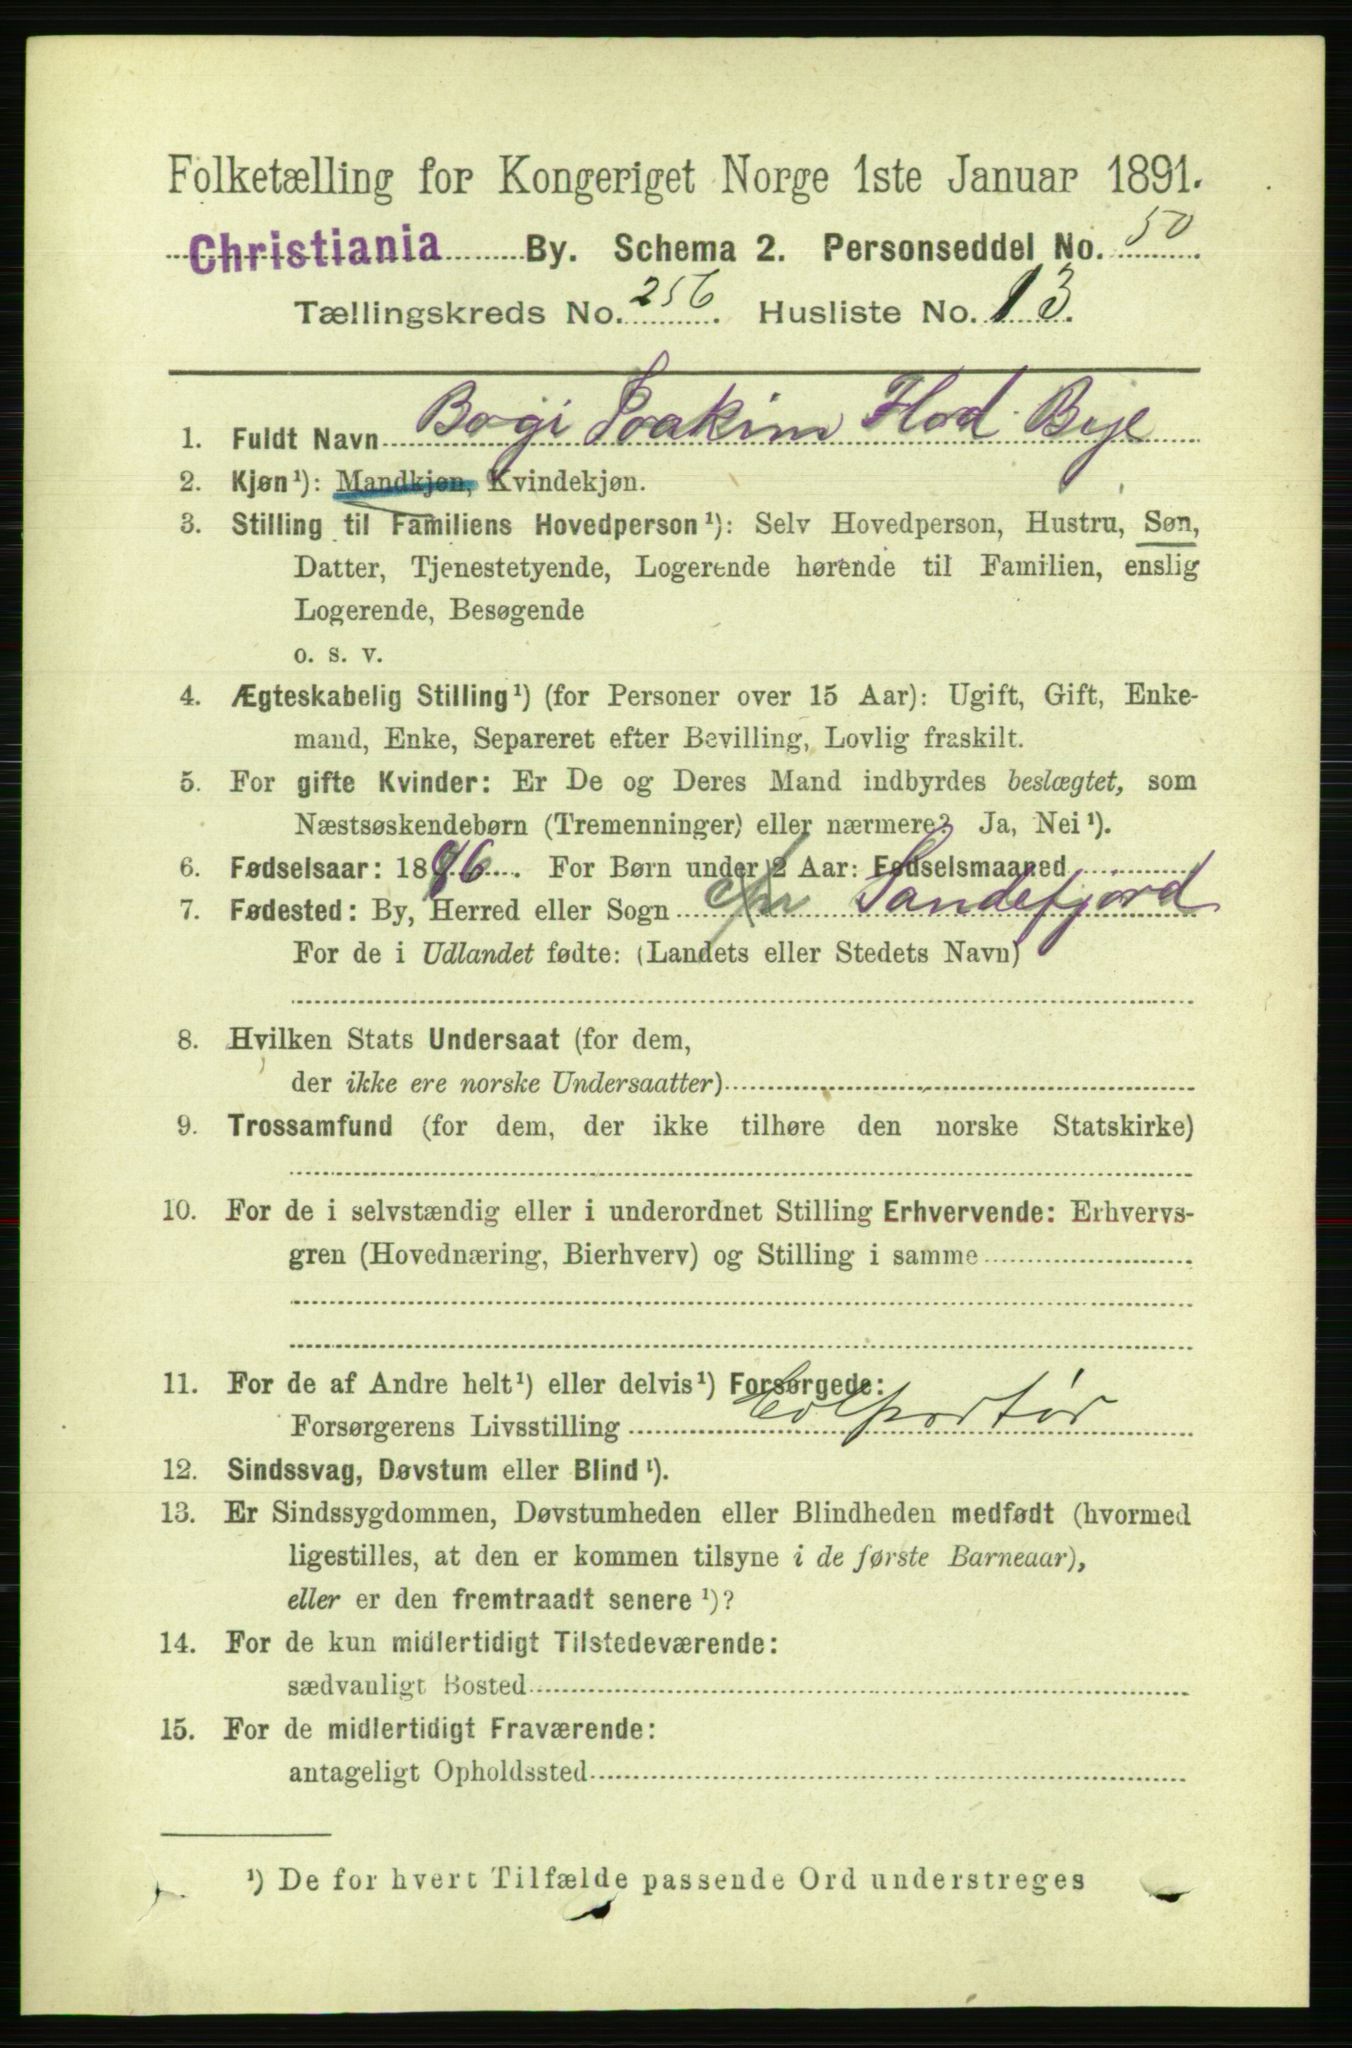 Folketælling for Kongeriget Norge 1ste Januar 1891.
Christiania By. Schema 2. Personseddel No. 50
Tællingskreds No. 256. Husliste No. 13.
1. Fuldt Navn Bogi Joakim Flod Bye
2. Kjøn¹): Mandkjøn, Kvindekjøn.
3. Stilling til Familiens Hovedperson¹): Selv Hovedperson, Hustru, Søn,
Datter, Tjenestetyende, Logerende hørende til Familien, enslig
Logerende, Besøgende
o. s. v.
4. Ægteskabelig Stilling¹) (for Personer over 15 Aar): Ugift, Gift, Enke-
mand, Enke, Separeret efter Bevilling, Lovlig fraskilt.
5. For gifte Kvinder: Er De og Deres Mand indbyrdes beslægtet, som
Næstsøskendebørn (Tremenninger) eller nærmere? Ja, Nei¹).
6. Fødselsaar: 1886. For Børn under 2 Aar: Fødselsmaaned
7. Fødested: By, Herred eller Sogn Sandefjord
For de i Udlandet fødte: (Landets eller Stedets Navn)
8. Hvilken Stats Undersaat (for dem,
der ikke ere norske Undersaatter)
9. Trossamfund (for dem, der ikke tilhøre den norske Statskirke)
10. For de i selvstændig eller i underordnet Stilling Erhvervende: Erhvervs-
gren (Hovednæring, Bierhverv) og Stilling i samme
11. For de af Andre helt¹) eller delvis¹) Forsørgede:
Forsørgerens Livsstilling Colportør
12. Sindssvag, Døvstum eller Blind¹).
13. Er Sindssygdommen, Døvstumheden eller Blindheden medfødt (hvormed
ligestilles, at den er kommen tilsyne i de første Barneaar),
eller er den fremtraadt senere¹)?
14. For de kun midlertidigt Tilstedeværende:
sædvanligt Bosted
15. For de midlertidigt Fraværende:
antageligt Opholdssted
¹) De for hvert Tilfælde passende Ord understreges